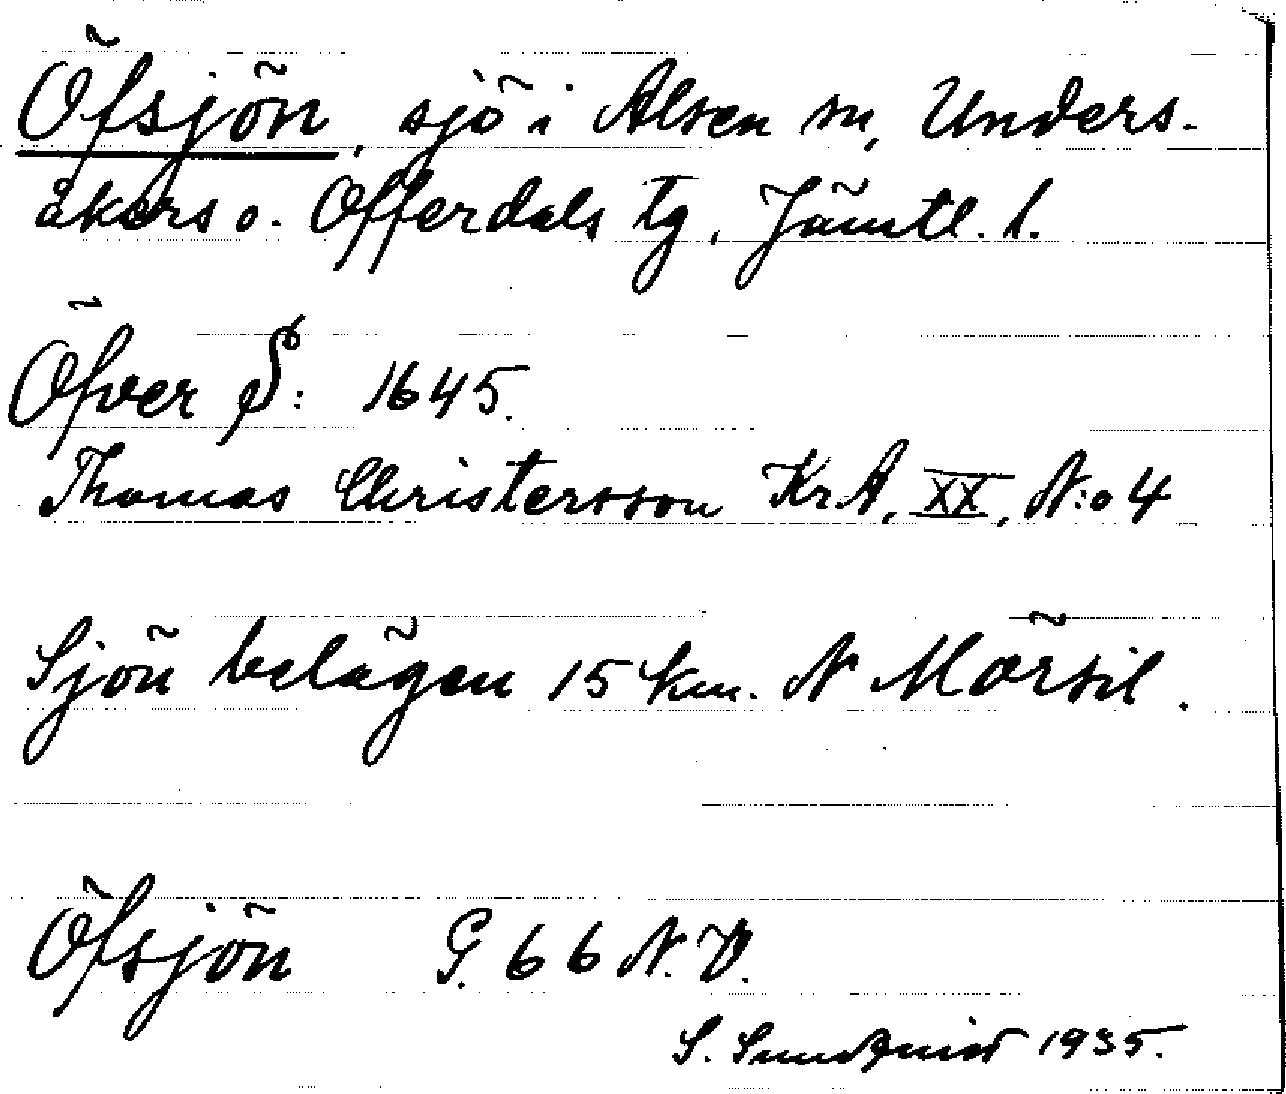 Öfsjön, sjö i Alsen sn, Unders-
åkers o. Offerdals tg, Jämtl. l.
Öfver S: 1645.
Thomas Christersson Kr.A, XX, N:o 4
Sjön belägen 15 km. N Mörsil.
Öfsjön G. 66 N.V.
S. Sundqvist 1935.